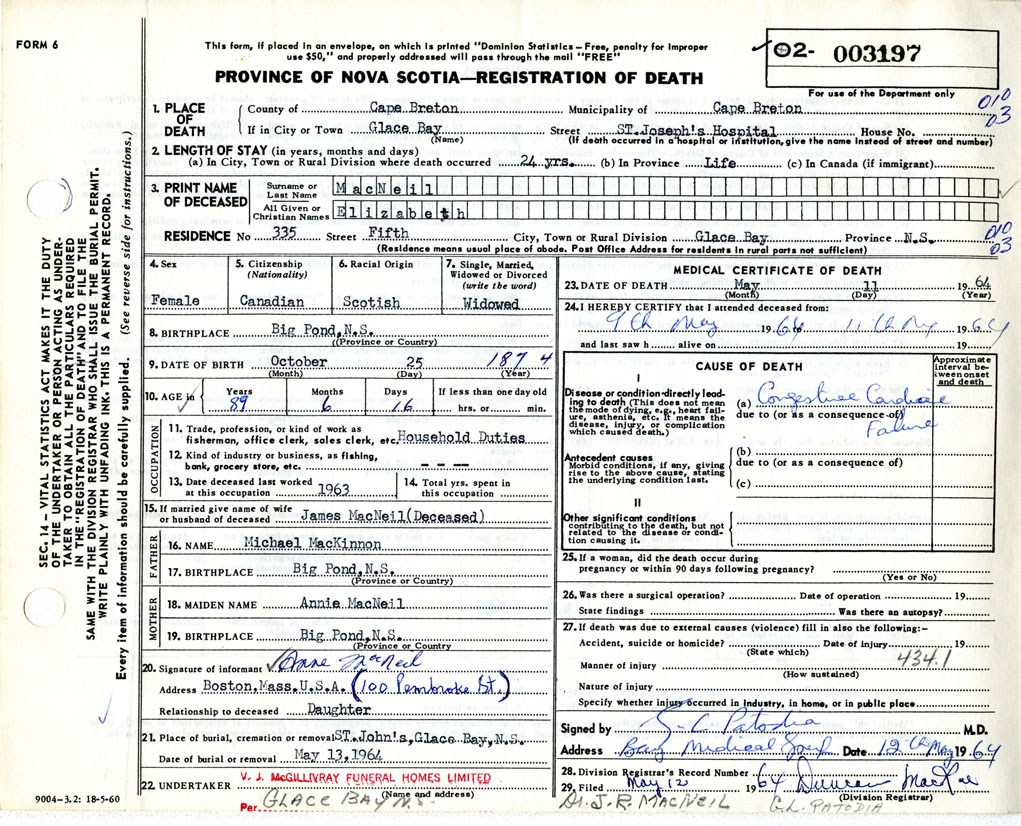 FORM 6
This form, if placed in an envelope, on which is printed "Dominion Statistics – Free, penalty for improper
use $50," and properly addressed will pass through the mail "FREE"
02- 003197
For use of the Department only
PROVINCE OF NOVA SCOTIA—REGISTRATION OF DEATH
010
03
1. PLACE OF DEATH
County of Cape Breton Municipality of Cape Breton
If in City or Town Glace Bay Street ST. Joseph's Hospital House No.
(Name) (If death occurred in a hospital or institution, give the name instead of street and number)
2. LENGTH OF STAY (in years, months and days)
(a) In City, Town or Rural Division where death occurred 24 yrs. (b) In Province Life (c) In Canada (if immigrant)
3. PRINT NAME OF DECEASED
Surname or Last Name MacNeil
All Given or Christian Names Elizabeth
RESIDENCE No 335 Street Fifth City, Town or Rural Division Glace Bay Province N.S.
(Residence means usual place of abode. Post Office Address for residents in rural parts not sufficient)
010
03
4. Sex
Female
5. Citizenship
(Nationality)
Canadian
6. Racial Origin
Scotish
7. Single, Married,
Widowed or Divorced
(write the word)
Widowed
8. BIRTHPLACE Big Pond, N.S.
((Province or Country)
9. DATE OF BIRTH October 25 1874
(Month) (Day) (Year)
10. AGE in
Years Months Days If less than one day old
89 6 16 hrs. or min.
OCCUPATION
11. Trade, profession, or kind of work as
fisherman, office clerk, sales clerk, etc. Household Duties
12. Kind of industry or business, as fishing,
bank, grocery store, etc. - - --
13. Date deceased last worked
at this occupation 1963
14. Total yrs. spent in
this occupation
15. If married give name of wife
or husband of deceased James MacNeil(Deceased)
FATHER
16. NAME Michael MacKinnon
17. BIRTHPLACE Big Pond, N.S.
(Province or Country)
MOTHER
18. MAIDEN NAME Annie MacNeil
19. BIRTHPLACE Big Pond, N.S.
(Province or Country
20. Signature of informant Anne MacNeil
Address Boston, Mass. U.S.A. (100 Pembroke St.)
Relationship to deceased Daughter
21. Place of burial, cremation or removal ST. John's, Glace Bay, N.S.
Date of burial or removal May 13, 1964
22. UNDERTAKER V. J. McGILLIVRAY FUNERAL HOMES LIMITED
(Name and address)
Per GLACE BAY N.S.
9004–3.2: 18-5-60
MEDICAL CERTIFICATE OF DEATH
23. DATE OF DEATH May 11 19 64
(Month) (Day) (Year)
24. I HEREBY CERTIFY that I attended deceased from:
9th May 1964 11th May 1964
and last saw h alive on 19
CAUSE OF DEATH
Approximate
interval be-
tween onset
and death
I
Disease or condition directly lead-
ing to death (This does not mean
the mode of dying, e.g., heart fail-
ure, asthenia, etc. It means the
disease, injury, or complication
which caused death.)
(a) Congestive Cardiac
due to (or as a consequence of)
Failure
Antecedent causes
Morbid conditions, if any, giving
rise to the above cause, stating
the underlying condition last.
(b)
due to (or as a consequence of)
(c)
II
Other significant conditions
contributing to the death, but not
related to the disease or condi-
tion causing it.
25. If a woman, did the death occur during
pregnancy or within 90 days following pregnancy?
(Yes or No)
26. Was there a surgical operation? Date of operation 19
State findings Was there an autopsy?
27. If death was due to external causes (violence) fill in also the following:–
Accident, suicide or homicide? Date of injury 19
(State which)
434.1
Manner of injury
(How sustained)
Nature of injury
Specify whether injury occurred in industry, in home, or in public place
Signed by G-C Patodia M.D.
Address Bay Medical Date 12th May 1964
28. Division Registrar's Record Number
29. Filed May 12 1964 Duncan MacRae
(Division Registrar)
Dr. J. R. MACNEIL G.L. PATODIA
SEC. 14 – VITAL STATISTICS ACT MAKES IT THE DUTY
OF THE UNDERTAKER OR PERSON ACTING AS UNDER-
TAKER TO OBTAIN ALL THE PARTICULARS REQUIRED
IN THE "REGISTRATION OF DEATH" AND TO FILE THE
SAME WITH THE DIVISION REGISTRAR WHO SHALL ISSUE THE BURIAL PERMIT.
WRITE PLAINLY WITH UNFADING INK. THIS IS A PERMANENT RECORD.
Every item of information should be carefully supplied. (See reverse side for instructions.)